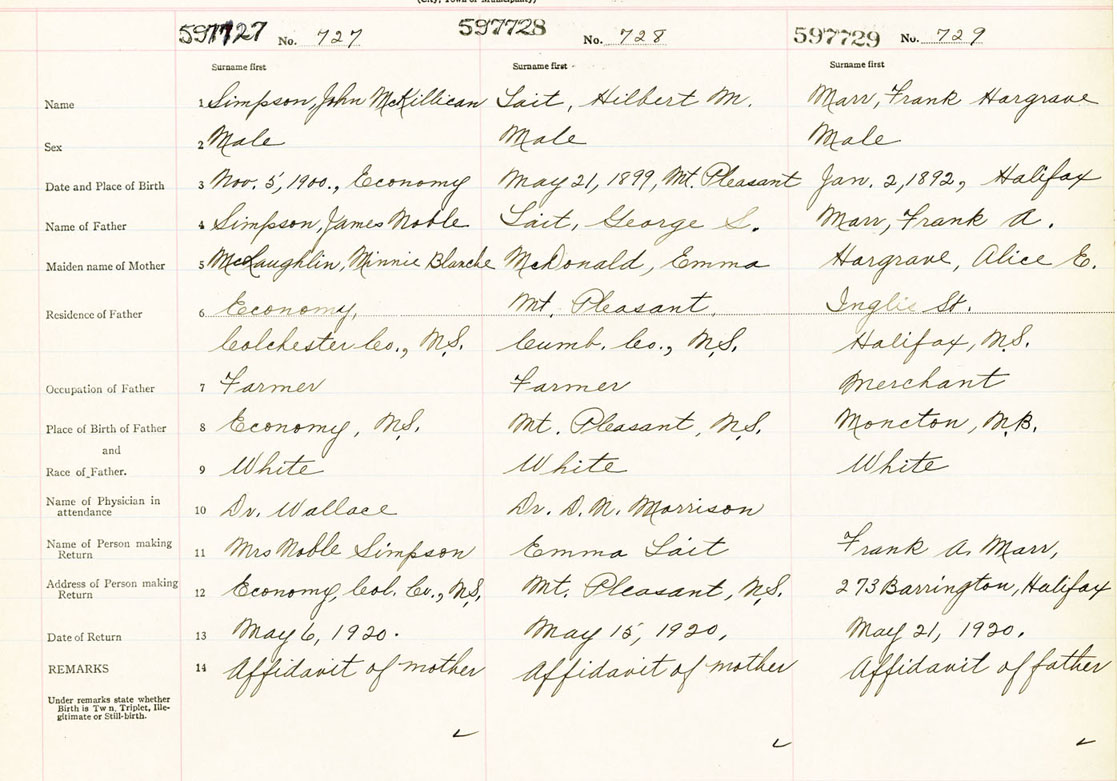 (City, Town or Municipality)
597727 No. 727 597728 No. 728 597729 No. 729
Surname first Surname first Surname first
Name 1 Simpson, John McKillican Tait, Hilbert M. Marr, Frank Hargrave
Sex 2 Male Male Male
Date and Place of Birth 3 Nov. 5, 1900., Economy May 21, 1899, Mt. Pleasant Jan. 2, 1892, Halifax
Name of Father 4 Simpson, James Noble Tait, George S. Marr, Frank A.
Maiden name of Mother 5 McLaughlin, Minnie Blanche McDonald, Emma Hargrave, Alice E.
Residence of Father 6 Economy, Mt. Pleasant, Inglis St.
Colchester Co., N.S. Cumb. Co., N.S. Halifax, N.S.
Occupation of Father 7 Farmer Farmer Merchant
Place of Birth of Father 8 Economy, N.S. Mt. Pleasant, N.S. Moncton, N.B.
and
Race of Father. 9 White White White
Name of Physician in
attendance 10 Dr. Wallace Dr. D. N. Morrison
Name of Person making
Return 11 Mrs Noble Simpson Emma Tait Frank A. Marr,
Address of Person making
Return 12 Economy, Col. Co., N.S. Mt. Pleasant, N.S. 273 Barrington, Halifax
Date of Return 13 May 6, 1920. May 15, 1920. May 21, 1920.
REMARKS 14 Affidavit of mother Affidavit of mother Affidavit of father
Under remarks state whether
Birth is Twin, Triplet, Ille-
gitimate or Still-birth.